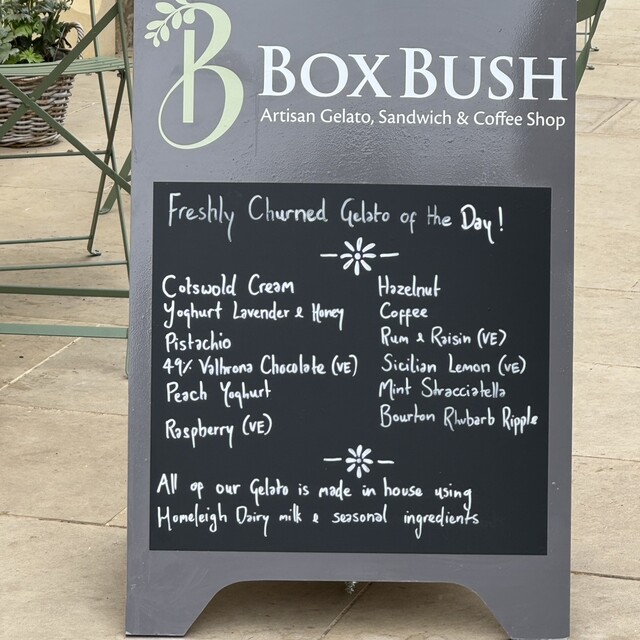 B
BOX BUSH
Artisan Gelato, Sandwich & Coffee Shop
Freshly Churned Gelato of the Day!
Cotswold Cream
Yoghurt Lavender & Honey
Pistachio
49% Valhrona Chocolate (VE)
Peach Yoghurt
Raspberry (VE)
Hazelnut
Coffee
Rum & Raisin (VE)
Sicilian Lemon (VE)
Mint Stracciatella
Bourton Rhubarb Ripple
All of our Gelato is made in house using
Homeleigh Dairy milk & seasonal ingredients